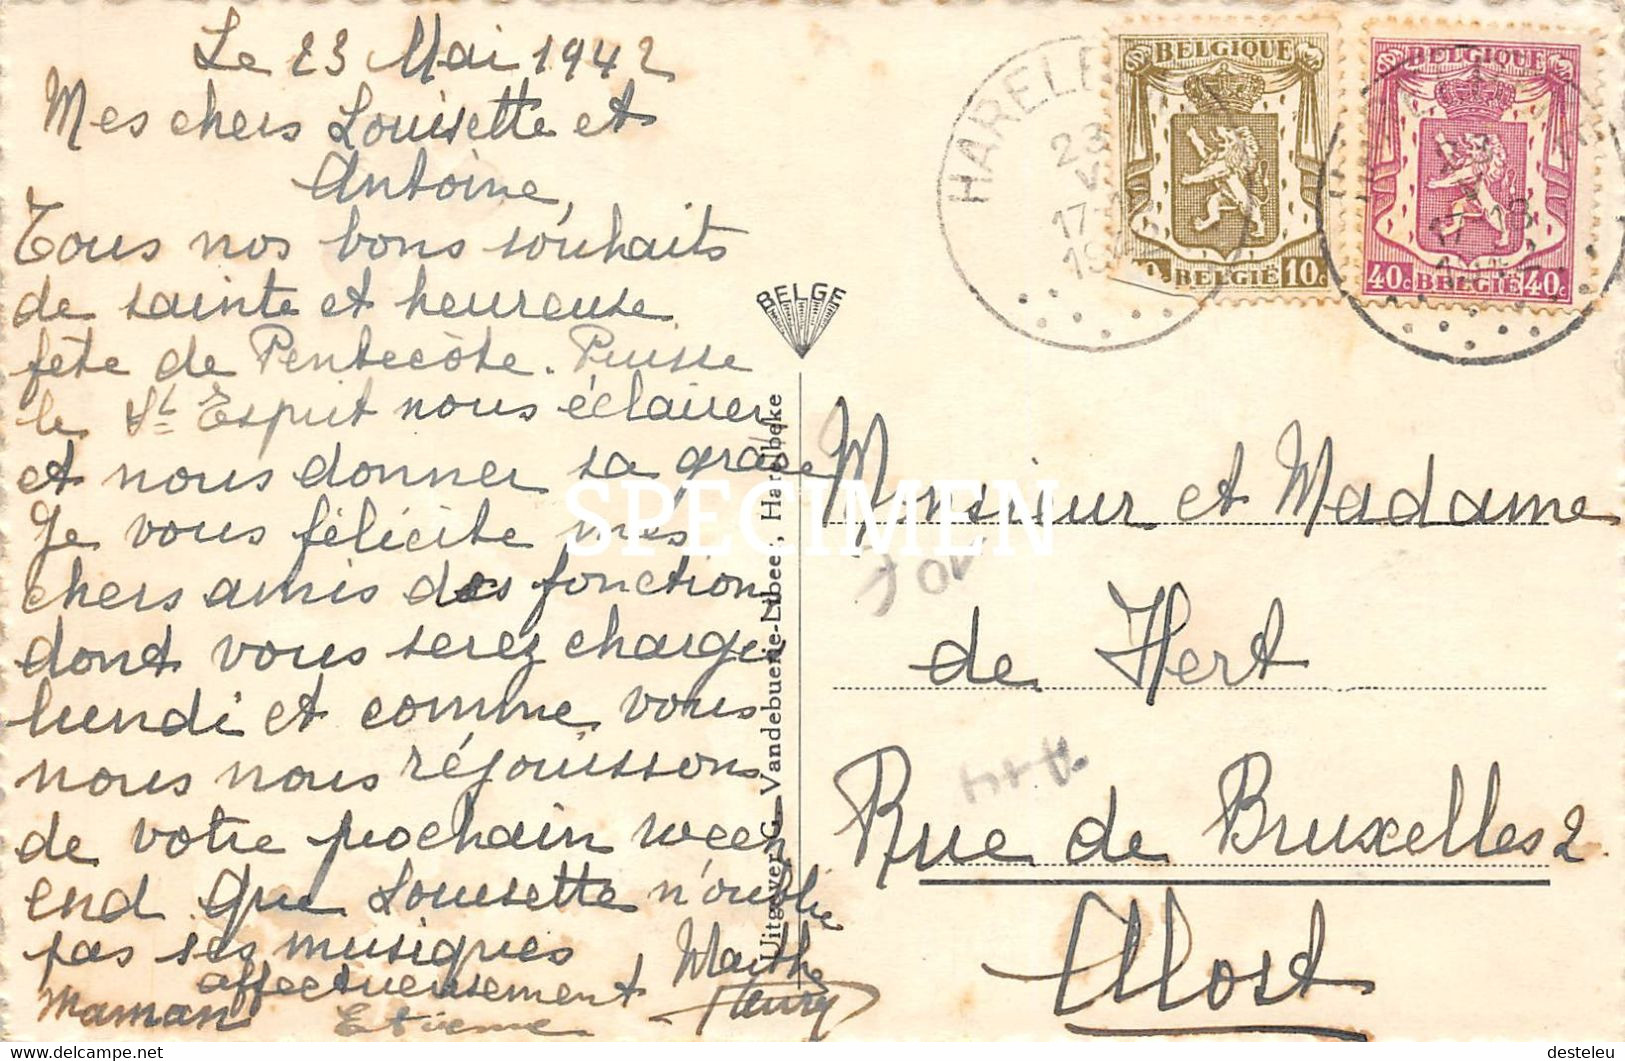 Le 23 Mai 1942
Mes chers Louisette et
Antoine,
Tous nos bons souhaits
de sainte et heureuse
fête de Pentecôte. Puisse
le St Esprit nous éclairer
et nous donner sa grâce
Je vous félicite mes
chers amis des fonctions
dont vous serez chargés
lundi et comme vous
nous nous réjouissons
de votre prochain week
end que Louisette n'oublie
pas ses musiques
affectueusement Marthe
Maman Etienne Henry
BELGE
Uitgever G. Vandebuerie-Libeer, Harelbeke
HARELBE
23
V
17-
1942
BELGIQUE
10c BELGIË 10c
BELGIQUE
40c BELGIË 40c
23
V
17-18
Monsieur et Madame
de Hert
Rue de Bruxelles 2
Alost
SPECIMEN
www.delcampe.net
desteleu